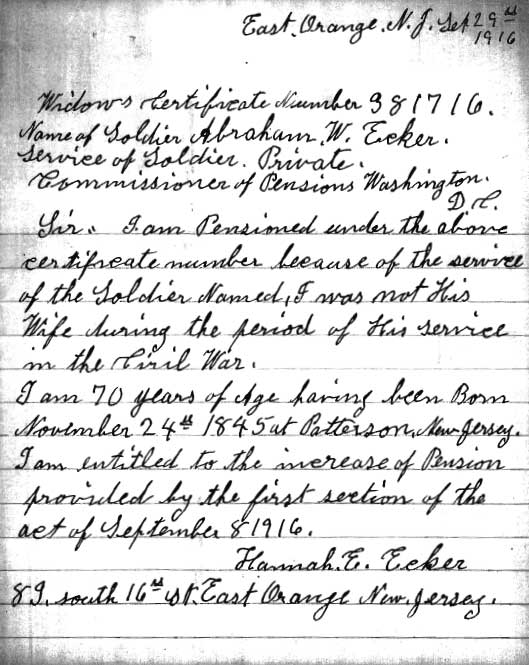 East Orange, N.J. Sept 29th
1916
Widows Certificate Number 381716.
Name of Soldier Abraham. W. Ecker.
Service of Soldier. Private.
Commissioner of Pensions Washington.
D.C.
Sir. I am Pensioned under the above
certificate number because of the service
of the Soldier Named, I was not His
Wife during the period of His service
in the Civil War.
I am 70 years of Age having been Born
November 24th 1845 at Patterson, New Jersey.
I am entitled to the increase of Pension
provided by the first section of the
act of September 8 1916.
Hannah. E. Ecker
89. south 16th St. East Orange New Jersey.